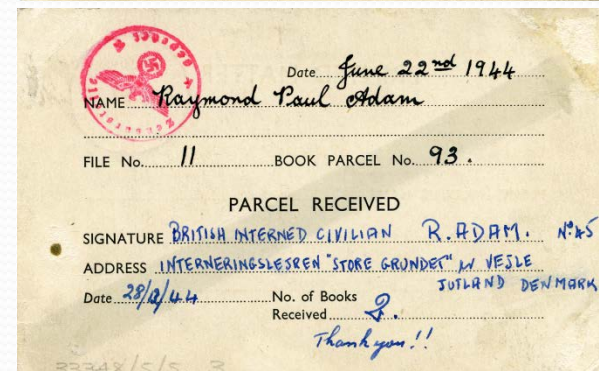 Date June 22nd 1944
NAME Raymond Paul Adam
FILE No. 11 BOOK PARCEL No. 93.
PARCEL RECEIVED
SIGNATURE BRITISH INTERNED CIVILIAN R. ADAM. No 45
ADDRESS INTERNERINGSLEJREN "STORE GRUNDET" pr VEJLE
JUTLAND DENMARK
Date 28/8/44 No. of Books
Received 2.
Thank you!!